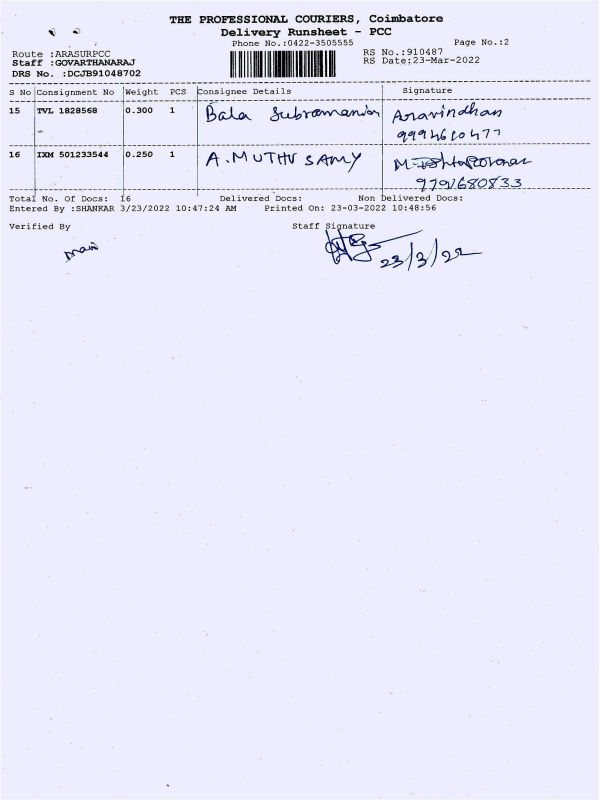 THE PROFESSIONAL COURIERS, Coimbatore
Delivery Runsheet - PCC
Phone No.:0422-3505555 Page No.:2
Route :ARASURPCC RS No.:910487
Staff :GOVARTHANARAJ RS Date:23-Mar-2022
DRS No. :DCJB91048702
S No Consignment No Weight PCS Consignee Details Signature
15 TVL 1828568 0.300 1 Bala Subramanian Aravindhan
16 IXM 501233544 0.250 1 A. MUTHU SAMY M.
9791680833
Total No. Of Docs: 16 Delivered Docs: Non Delivered Docs:
Entered By :SHANKAR 3/23/2022 10:47:24 AM Printed On: 23-03-2022 10:48:56
Verified By Staff Signature
23/3/22